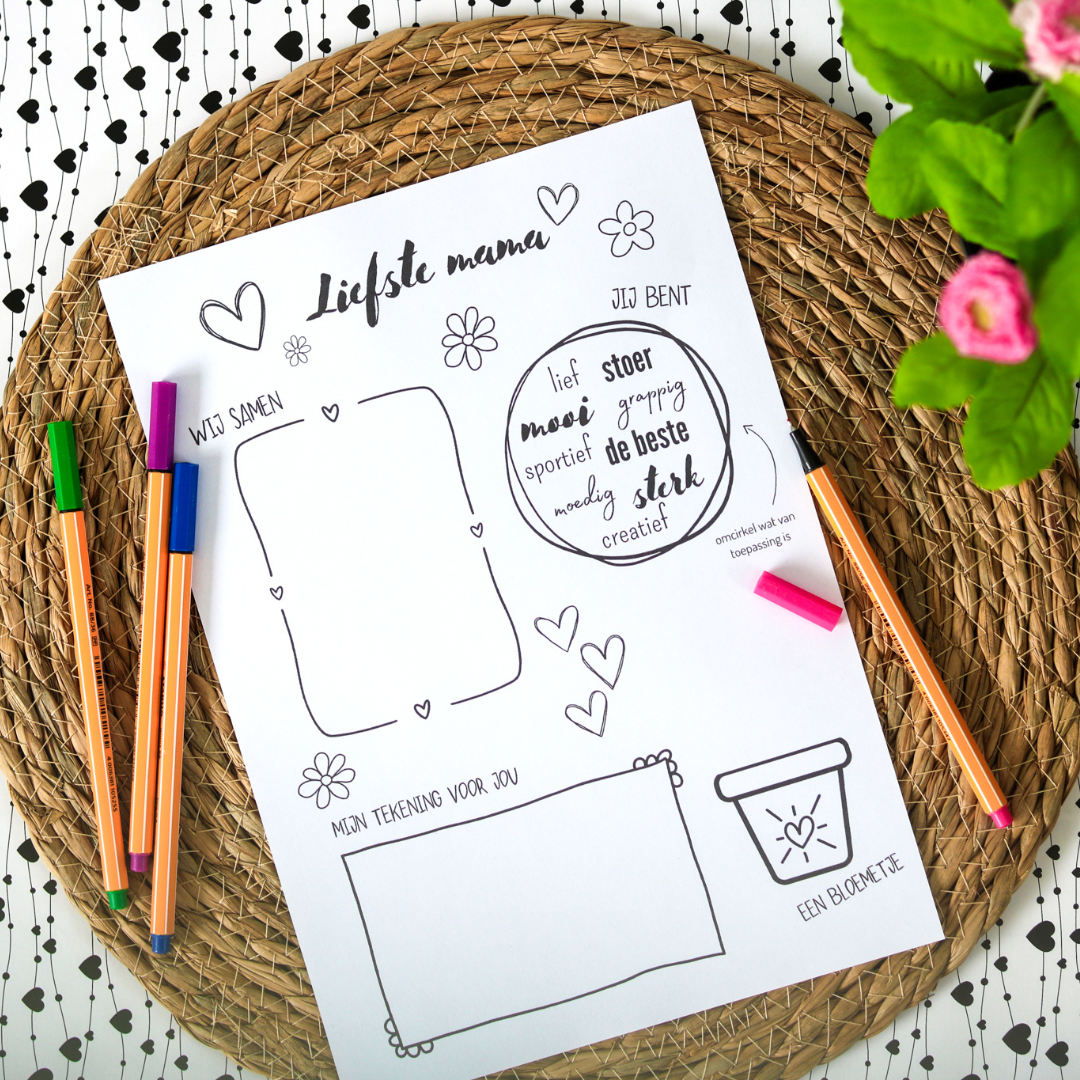 Liefste mama
JIJ BENT
WIJ SAMEN
lief stoer
mooi grappig
sportief de beste
moedig sterk
creatief
omcirkel wat van
toepassing is
MIJN TEKENING VOOR JOU
EEN BLOEMETJE